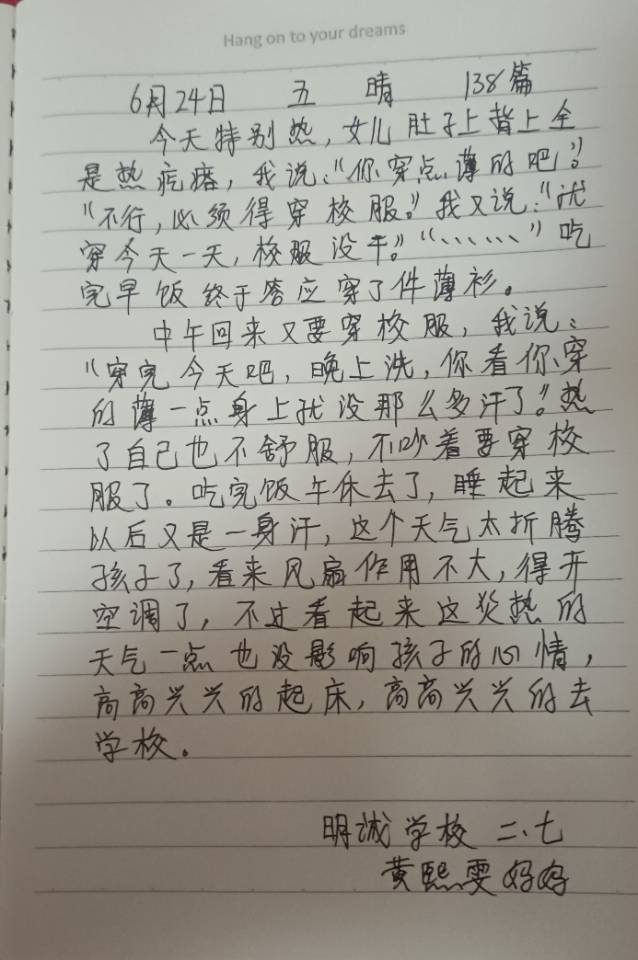 Hang on to your dreams
6月24日 五 晴 138篇
今天特别热，女儿肚子上背上全
是热疙瘩，我说：“你穿点薄的吧”。
“不行，必须得穿校服。”我又说：“就
穿今天一天，校服没干。”“、、、、、、”吃
完早饭终于答应穿了件薄衫。
中午回来又要穿校服，我说：
“穿完今天吧，晚上洗，你看你穿
的薄一点身上就没那么多汗了。”热
了自己也不舒服，不吵着要穿校
服了。吃完饭午休去了，睡起来
以后又是一身汗，这个天气太折腾
孩子了，看来风扇作用不大，得开
空调了，不过看起来这炎热的
天气一点也没影响孩子的心情，
高高兴兴的起床，高高兴兴的去
学校。
明诚学校 二、七
黄熙雯妈妈